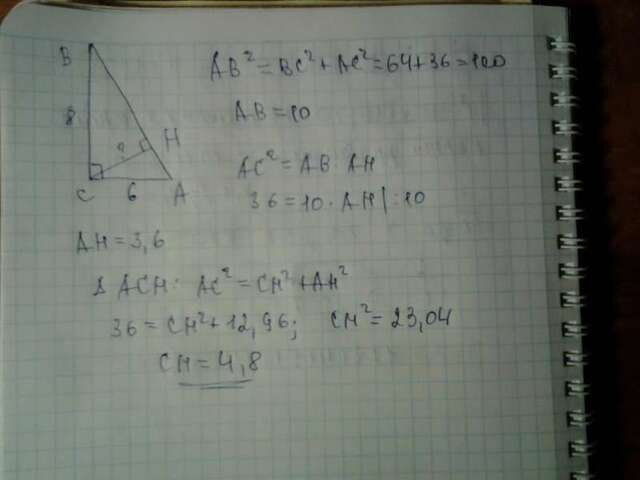 B
8
?
H
C
6
A
AB² = BC² + AC² = 64 + 36 = 100
AB = 10
AC² = AB · AH
36 = 10 · AH | : 10
AH = 3,6
Δ ACH: AC² = CH² + AH²
36 = CH² + 12,96; CH² = 23,04
CH = 4,8